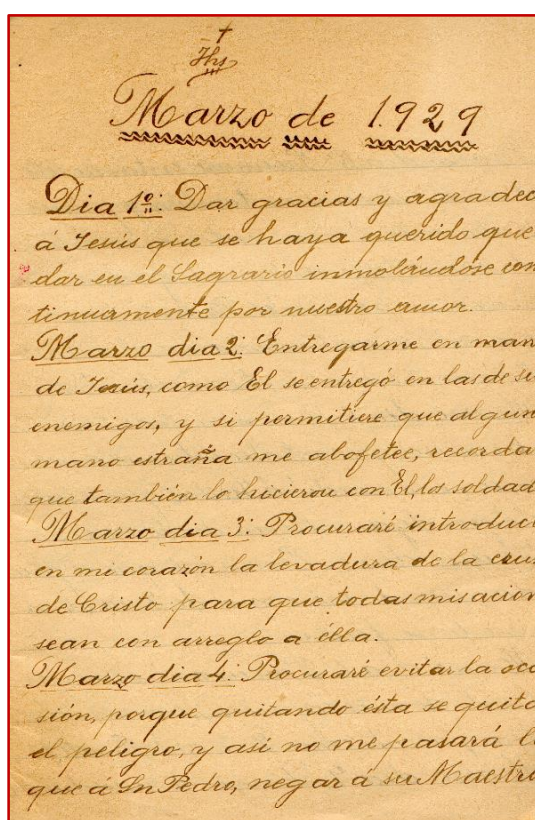 †
Jhs
Marzo de 1.929
Dia 1º: Dar gracias y agradec
á Jesús que se haya querido que
dar en el Sagrario inmolándose con
tinuamente por nuestro amor.
Marzo dia 2: Entregarme en man
de Jesús, como El se entregó en las de su
enemigos, y si permitiere que algun
mano estraña me abofetee, recorda
que también lo hicieron con El, los soldad
Marzo dia 3: Procuraré introduci
en mi corazón la levadura de la cru
de Cristo para que todas mis acion
sean con arreglo a élla.
Marzo dia 4: Procuraré evitar la oca
sión, porque quitando ésta se quita
el peligro, y asi no me pasará l
que á Sn Pedro, negar á su Maestro